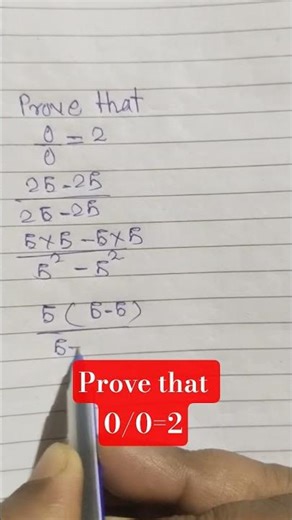 Prove that
0/0 = 2
25-25
25-25
5×5 - 5×5
5² - 5²
5(5-5)
5-
Prove that
0/0=2